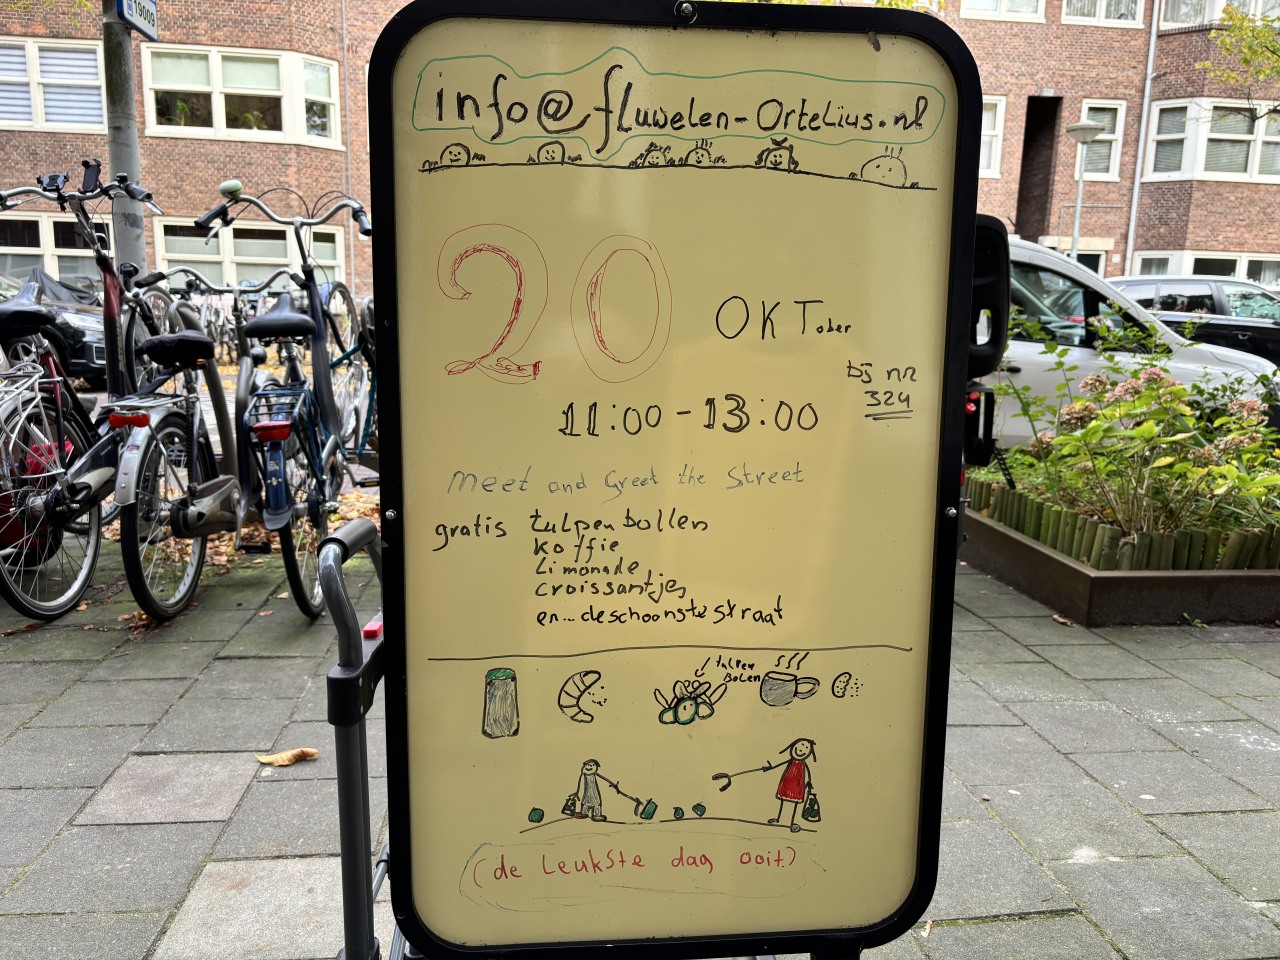 19009
info@fluwelen-Ortelius.nl
20 OKTober
bij nr
324
11:00 - 13:00
meet and Greet the Street
gratis tulpenbollen
koffie
Limonade
croissantjes
en... de schoonste straat
tulpen
Bolen
(de Leukste dag ooit)